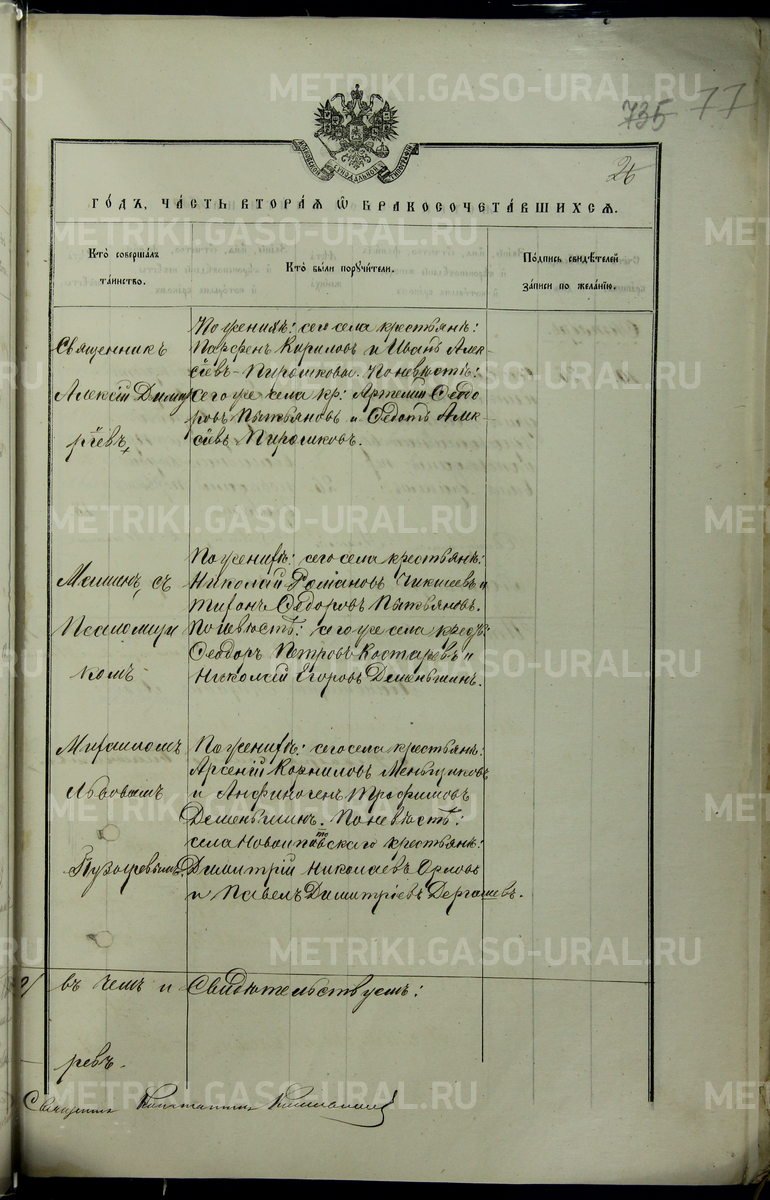 735 77
26
ГО́ДЪ, ЧА́СТЬ ВТОРА́Я Ѡ БРАКОСОЧЕТА́ВШИХСЯ.
Кто̀ соверша́лъ
та́инство.
Кто̀ бы́ли порꙋчи́тели.
По́дпись свидѣ́телей
за́писи по жела́нїю.
Священникъ
Алексій Димит
ріевъ
По женихѣ: сего села крестьянѣ:
Парфенъ Кириловъ и Иванъ Алек-
сіевъ Пироликовы. По невѣстѣ:
сего же села кр: Артемій Ѳеодо
ровъ Пытьяновъ и Ѳедотъ Алек-
сіевъ Пироликовъ.
съ
Псаломщи
комъ
По женихѣ: сего села крестьянѣ:
Николай Романовъ Чикишевъ и
Тифонъ Ѳедоровъ Пытьяновъ.
По невѣстѣ: сего же села крест:
Ѳеодоръ Петровъ Костаревъ и
Николай Егоровъ Деменьшинъ.
Михаиломъ
Львовымъ
Пузыревымъ.
По женихѣ: сего села крестьянѣ:
Арсеній Корниловъ Меньщиковъ
и Анфиногенъ Трофимовъ
Деменьшинъ. По невѣстѣ:
села Новоипатовскаго крестьянѣ:
Димитрій Николаевъ Орловъ
и Павелъ Димитріевъ Дергачевъ.
въ чемъ и Свидѣтельствуемъ:
ревъ.
Священникъ Константинъ
METRIKI.GASO-URAL.RU